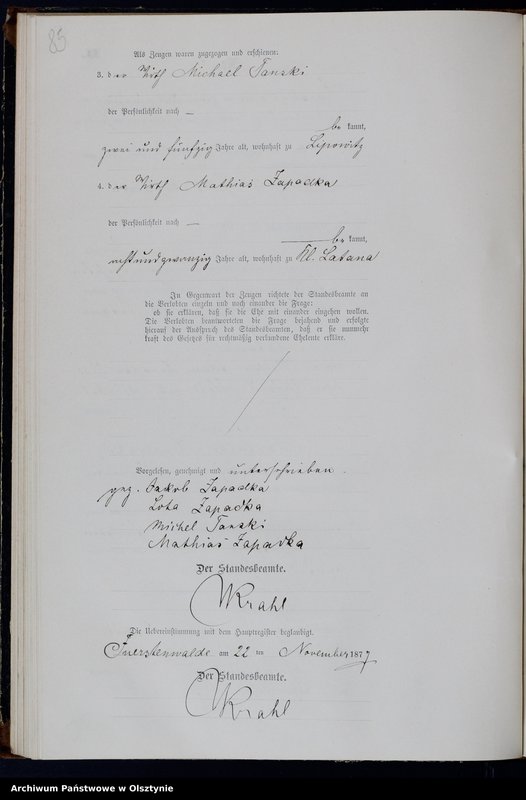 85
Als Zeugen waren zugezogen und erschienen:
3. der Wirth Michael Tanski
der Persönlichkeit nach —
be kannt,
zwei und fünfzig Jahre alt, wohnhaft zu Lipowitz
4. der Wirth Mathias Zapadka
der Persönlichkeit nach —
be kannt,
achtundzwanzig Jahre alt, wohnhaft zu Kl. Latana
In Gegenwart der Zeugen richtete der Standesbeamte an
die Verlobten einzeln und nach einander die Frage:
ob sie erklären, daß sie die Ehe mit einander eingehen wollen.
Die Verlobten beantworteten die Frage bejahend und erfolgte
hierauf der Ausspruch des Standesbeamten, daß er sie nunmehr
kraft des Gesetzes für rechtmäßig verbundene Eheleute erkläre.
Vorgelesen, genehmigt und unterschrieben.
gez. Jakob Zapadka
Lota Zapadka
Michel Tanski
Mathias Zapadka
Der Standesbeamte.
Krahl
Die Uebereinstimmung mit dem Hauptregister beglaubigt.
Fuerstenwalde am 22 ten November 1877
Der Standesbeamte.
Krahl
Archiwum Państwowe w Olsztynie